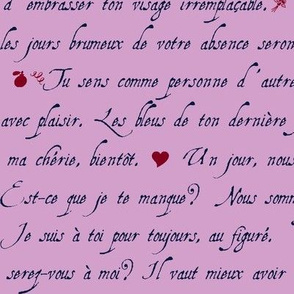 d'embrasser ton visage irremplaçable.
les jours brumeux de votre absence seron
Tu sens comme personne d'autre
avec plaisir. Les bleus de ton dernière
ma chérie, bientôt. Un jour, nous
Est-ce que je te manque? Nous somm
Je suis à toi pour toujours, au figuré.
serez-vous à moi? Il vaut mieux avoir